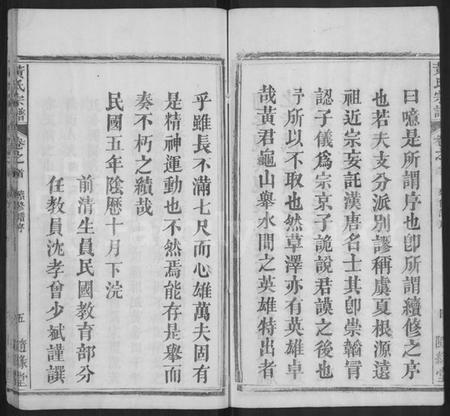 曰噫是所謂序也卽所謂續修之序
也若夫支分派別謬稱虞夏根源遠
祖近宗妄託漢唐名士其卽崇韜冒
認子儀爲宗京子詭說君謨之後也
所以不取也然草澤亦有英雄卓
哉黃君龜山舉水間之英雄特出者
乎雖長不滿七尺而心雄萬夫固有
是精神運動也不然焉能存是舉而
奏不朽之績哉
民國五年陰歷十月下浣
前清生員民國教育部分
任教員沈孝曾少斌謹譔
黃氏宗譜
卷之首
五
隨緣堂